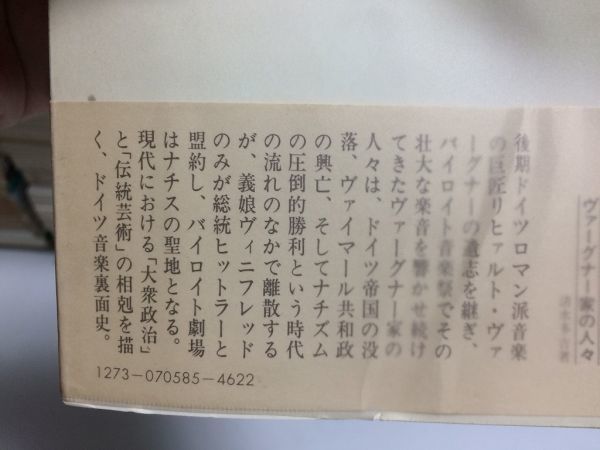 ヴァーグナー家の人々
清水多吉著
後期ドイツロマン派音楽
の巨匠リヒァルト・ヴァ
ーグナーの遺志を継ぎ、
バイロイト音楽祭でその
壮大な楽音を響かせ続け
てきたヴァーグナー家の
人々は、ドイツ帝国の没
落、ヴァイマール共和政
の興亡、そしてナチズム
の圧倒的勝利という時代
の流れのなかで離散する
が、義娘ヴィニフレッド
のみが総統ヒットラーと
盟約し、バイロイト劇場
はナチスの聖地となる。
現代における「大衆政治」
と「伝統芸術」の相剋を描
く、ドイツ音楽裏面史。
1273-070585-4622